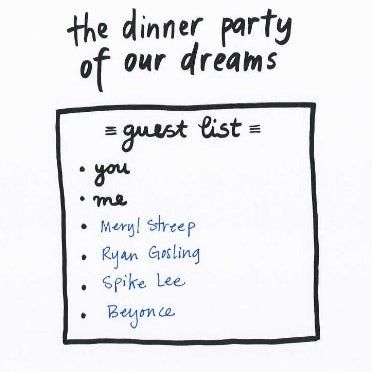 the dinner party
of our dreams
≡ guest list ≡
• you
• me
• Meryl Streep
• Ryan Gosling
• Spike Lee
• Beyonce